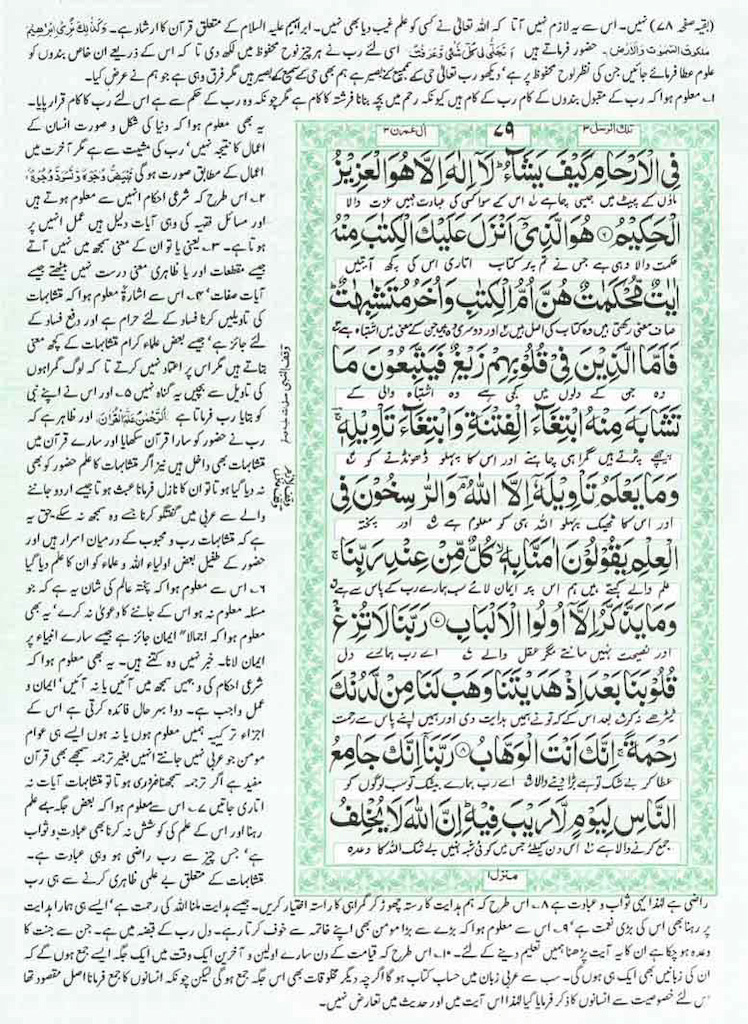 (بقیہ صفحہ ۷۸) نہیں۔ اس سے یہ لازم نہیں آتا کہ اللہ تعالیٰ نے کسی کو علم غیب دیا بھی نہیں۔ ابراہیم علیہ السلام کے متعلق قرآن کا ارشاد ہے۔ وَكَذٰلِكَ نُرِیْۤ اِبْرٰهِیْمَ
مَلَكُوْتَ السَّمٰوٰتِ وَالْاَرْضِ۔ حضور فرماتے ہیں اسی لئے رب نے ہر چیز لوح محفوظ میں لکھ دی تا کہ اس کے ذریعے ان خاص بندوں کو
علوم عطا فرمائے جائیں جن کی نظر لوح محفوظ پر ہے' دیکھو رب تعالیٰ حی کے سمیع کے بصیر ہے ہم بھی حی کے سمیع کے بصیر ہیں مگر فرق وہی ہے جو ہم نے عرض کیا۔
۱۔ معلوم ہوا کہ رب کے مقبول بندوں کے کام رب کے کام ہیں کیونکہ رحم میں بچہ بنانا فرشتہ کا کام ہے مگر چونکہ وہ رب کے حکم سے ہے اس لئے رب کا کام قرار پایا۔
یہ بھی معلوم ہوا کہ دنیا کی شکل و صورت انسان کے
اعمال کا نتیجہ نہیں' رب کی مشیت سے ہے مگر آخرت میں
اعمال کے مطابق صورت ہوگی تَبْیَضُّ وُجُوْهٌ وَّتَسْوَدُّ وُجُوْهٌ
۲۔ اس طرح کہ شرعی احکام انہیں سے معلوم ہوتے ہیں
اور مسائل فقہیہ کی وہی آیات دلیل ہیں عمل انہیں پر
ہوتا ہے۔ ۳۔ یعنی یا تو ان کے معنی سمجھ میں نہیں آتے
جیسے مقطعات اور یا ظاہری معنی درست نہیں بیٹھتے جیسے
آیات صفات' ۴۔ اس سے اشارۃً معلوم ہوا کہ متشابہات
کی تاویلیں کرنا فساد کے لئے حرام ہے اور دفع فساد کے
لئے جائز ہے' جیسے بعض علماء کرام متشابہات کے کچھ معنی
بتاتے ہیں مگر اس پر اعتماد نہیں کرتے تا کہ لوگ گمراہوں
کی تاویل سے بچیں یہ گناہ نہیں ۵۔ اور اس نے اپنے نبی
کو بتایا رب فرماتا ہے اَلرَّحْمٰنُ عَلَّمَ الْقُرْاٰنَ۔ اور ظاہر ہے کہ
رب نے حضور کو سارا قرآن سکھایا اور سارے قرآن میں
متشابہات بھی داخل ہیں نیز اگر متشابہات کا علم حضور کو بھی
نہ دیا گیا ہو تو ان کا نازل فرمانا عبث ہوتا جیسے اردو جاننے
والے سے عربی میں گفتگو کرنا جسے وہ سمجھ نہ سکے حق یہ
ہے کہ متشابہات رب و محبوب کے درمیان اسرار ہیں اور
حضور کے طفیل بعض اولیاء اللہ و علماء کو ان کا علم دیا گیا
۶۔ اس سے معلوم ہوا کہ پختہ عالم کی شان یہ ہے کہ جو
مسئلہ معلوم نہ ہو اس کے جاننے کا دعویٰ نہ کرے' یہ بھی
معلوم ہوا کہ اجمالاً ایمان جائز ہے جیسے سارے انبیاء پر
ایمان لانا۔ خبر نہیں وہ کتنے ہیں۔ یہ بھی معلوم ہوا کہ
شرعی احکام کی وجہیں سمجھ میں آئیں یا نہ آئیں' ایمان و
عمل واجب ہے۔ دوا بہر حال فائدہ کرتی ہے اس کے
اجزاء ترکیبیہ ہمیں معلوم ہوں یا نہ ہوں ایسے ہی عوام
مومن جو عربی نہیں جانتے انہیں بغیر ترجمہ سمجھے بھی قرآن
مفید ہے اگر ترجمہ سمجھنا ضروری ہوتا تو متشابہات آیات نہ
اتاری جاتیں ۷۔ اس سے معلوم ہوا کہ بعض جگہ بے علم
رہنا اور اس کے علم کی کوشش نہ کرنا بھی عبادت و ثواب
ہے' جس چیز سے رب راضی ہو وہی عبادت ہے۔
متشابہات کے متعلق بے علمی ظاہری کرنے سے ہی رب
تلك الرسل ٣ ٧٩ اٰل عمرٰن ٣
فِی الْاَرْحَامِ كَیْفَ یَشَآءُ ؕ لَاۤ اِلٰهَ اِلَّا هُوَ الْعَزِیْزُ
ماؤں کے پیٹ میں جیسی چاہے اس کے سوا کسی کی عبادت نہیں عزت والا
الْحَكِیْمُ ۝۶ هُوَ الَّذِیْۤ اَنْزَلَ عَلَیْكَ الْكِتٰبَ مِنْهُ
حکمت والا وہی ہے جس نے تم پر یہ کتاب اتاری اس کی کچھ آیتیں
اٰیٰتٌ مُّحْكَمٰتٌ هُنَّ اُمُّ الْكِتٰبِ وَاُخَرُ مُتَشٰبِهٰتٌ ؕ
صاف معنی رکھتی ہیں وہ کتاب کی اصل ہیں اور دوسری وہ ہیں جن کے معنی میں اشتباہ ہے
فَاَمَّا الَّذِیْنَ فِیْ قُلُوْبِهِمْ زَیْغٌ فَیَتَّبِعُوْنَ مَا
وہ جن کے دلوں میں کجی ہے وہ اشتباہ والی کے
تَشَابَهَ مِنْهُ ابْتِغَآءَ الْفِتْنَةِ وَابْتِغَآءَ تَاْوِیْلِهٖ ۚ
پیچھے پڑتے ہیں گمراہی چاہنے اور اس کا پہلو ڈھونڈنے کو
وَمَا یَعْلَمُ تَاْوِیْلَهٗۤ اِلَّا اللّٰهُ ۘ وَالرّٰسِخُوْنَ فِی
اور اس کا ٹھیک پہلو اللہ ہی کو معلوم ہے اور پختہ
الْعِلْمِ یَقُوْلُوْنَ اٰمَنَّا بِهٖ ۙ كُلٌّ مِّنْ عِنْدِ رَبِّنَا ۚ
علم والے کہتے ہیں ہم اس پر ایمان لائے سب ہمارے رب کے پاس سے ہے
وَمَا یَذَّكَّرُ اِلَّاۤ اُولُوا الْاَلْبَابِ ۝۷ رَبَّنَا لَا تُزِغْ
اور نصیحت نہیں مانتے مگر عقل والے اے رب ہمارے دل
قُلُوْبَنَا بَعْدَ اِذْ هَدَیْتَنَا وَهَبْ لَنَا مِنْ لَّدُنْكَ
ٹیڑھے نہ کر بعد اس کے کہ تو نے ہمیں ہدایت دی اور ہمیں اپنے پاس سے رحمت
رَحْمَةً ۚ اِنَّكَ اَنْتَ الْوَهَّابُ ۝۸ رَبَّنَاۤ اِنَّكَ جَامِعُ
عطا کر بے شک تو ہے بڑا دینے والا اے رب ہمارے بیشک تو سب لوگوں کو
النَّاسِ لِیَوْمٍ لَّا رَیْبَ فِیْهِ ؕ اِنَّ اللّٰهَ لَا یُخْلِفُ
جمع کرنے والا ہے اس دن کیلئے جس میں کوئی شبہ نہیں بے شک اللہ کا وعدہ
منزل ١
راضی ہے لہٰذا یہی ثواب و عبادت ہے ۸۔ اس طرح کہ ہم ہدایت کا رستہ چھوڑ کر گمراہی کا راستہ اختیار کریں۔ جیسے ہدایت ملنا اللہ کی رحمت ہے' ایسے ہی ہمارا ہدایت
پر رہنا بھی اس کی بڑی نعمت ہے' ۹۔ اس سے معلوم ہوا کہ بڑے سے بڑا مومن بھی اپنے خاتمہ سے خوف کرتا رہے۔ دل رب کے قبضہ میں ہے۔ جن سے جنت کا
وعدہ ہو چکا ہے ان کا یہ آیت پڑھنا ہمیں تعلیم دینے کے لئے۔ ۱۰۔ اس طرح کہ قیامت کے دن سارے اولین و آخرین ایک وقت میں ایک جگہ ایسے جمع ہوں گے کہ
ان کی زبانیں بھی ایک ہی ہوں گی۔ سب سے عربی زبان میں حساب کتاب ہو گا اگرچہ دیگر مخلوقات بھی اس جگہ جمع ہوگی لیکن چونکہ انسانوں کا جمع فرمانا اصل مقصود تھا
اس لئے خصوصیت سے انسانوں کا ذکر فرمایا گیا لہٰذا اس آیت میں اور حدیث میں تعارض نہیں۔